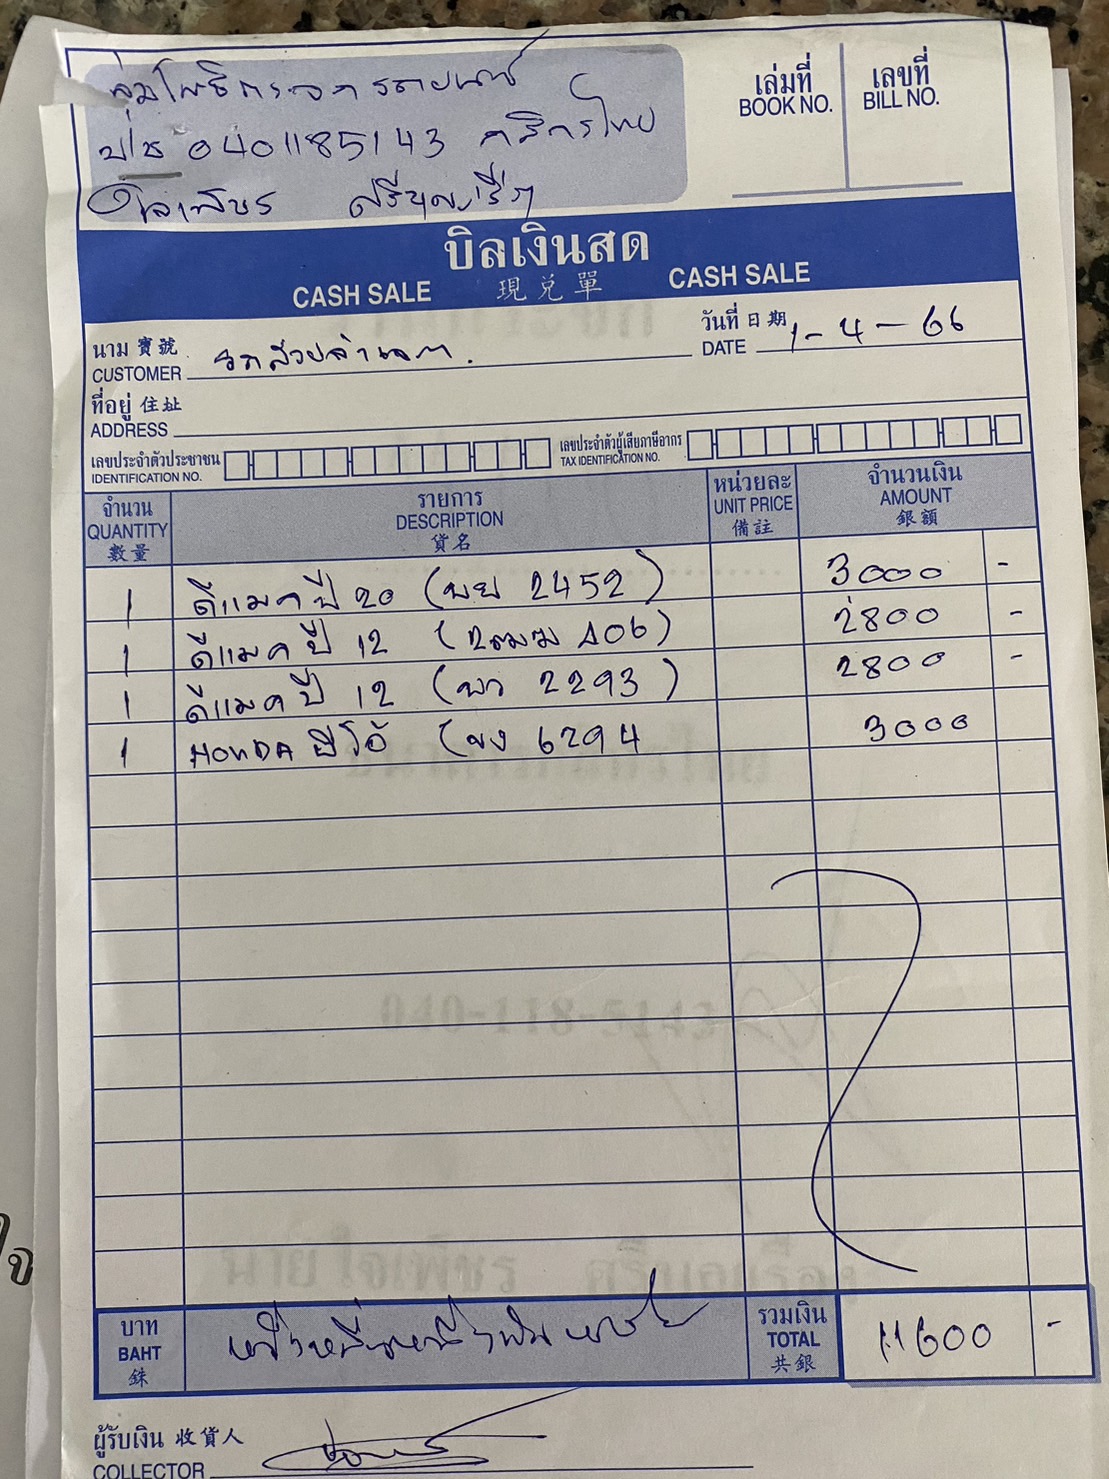 อุ่มโพธิ์กระจกรถยนต์
บ/ช 0401185143 กสิกรไทย
ใจเพ็ชร
เล่มที่
BOOK NO.
เลขที่
BILL NO.
บิลเงินสด
CASH SALE 現兌單 CASH SALE
นาม 寶號
CUSTOMER
วันที่ 日期 1-4-66
DATE
ที่อยู่ 住址
ADDRESS
เลขประจำตัวประชาชน
IDENTIFICATION NO.
เลขประจำตัวผู้เสียภาษีอากร
TAX IDENTIFICATION NO.
จำนวน รายการ หน่วยละ จำนวนเงิน
QUANTITY DESCRIPTION UNIT PRICE AMOUNT
數量 貨名 備註 銀額
1 ดีแมคปี 20 (ผย 2452) 3000 -
1 ดีแมคปี 12 (2ฒฆ 406) 2800 -
1 ดีแมคปี 12 (ผว 2293) 2800 -
1 HONDA ยีโอ้ (ขง 6294 3000
040-118-5143
นาย ใจเพ็ชร
บาท หนึ่งหมื่นหนึ่งพันหกร้อย รวมเงิน 11600 -
BAHT TOTAL
銖 共銀
ผู้รับเงิน 收貨人
COLLECTOR